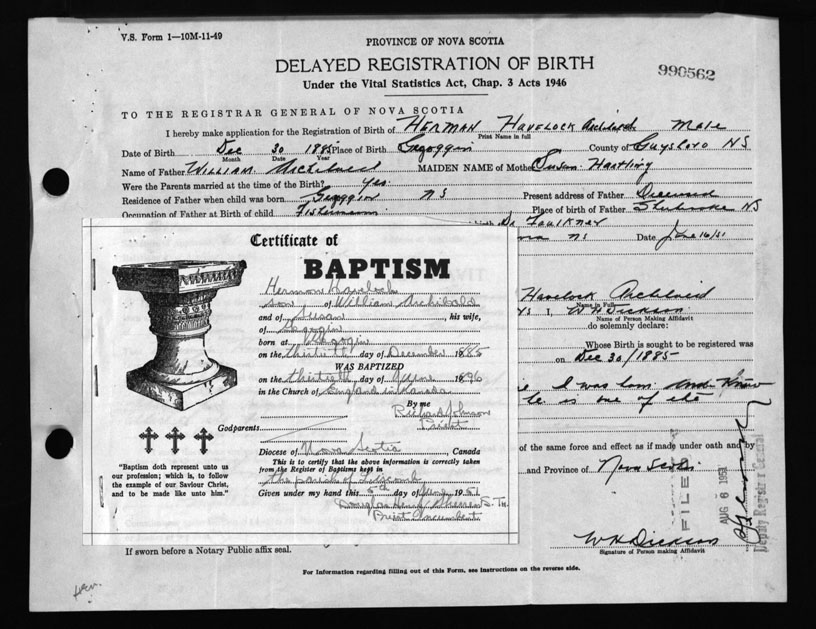 V.S. Form 1—10M-11-49
PROVINCE OF NOVA SCOTIA
DELAYED REGISTRATION OF BIRTH
990562
Under the Vital Statistics Act, Chap. 3 Acts 1946
TO THE REGISTRAR GENERAL OF NOVA SCOTIA
I hereby make application for the Registration of Birth of HERMAN Havelock Archibald Male
Print Name in full
Date of Birth Dec 30 1885 Place of Birth County of Guysboro NS
Month Date Year
Name of Father William Archibald MAIDEN NAME of Mother Susan Hartling
Were the Parents married at the time of the Birth? Yes
Residence of Father when child was born NS Present address of Father Deceased
Occupation of Father at Birth of child Fishermann Place of birth of Father Sherbrooke NS
Dr. Faulkner
NS Date June 16/51
Certificate of
BAPTISM
Hermon Havelock
son of William Archibald
and of Susan, his wife,
of
born at
on the thirtieth day of December 1885
WAS BAPTIZED
on the thirtieth day of 1896
in the Church of England in Canada
By me Richard Johnson
Priest
Godparents
Diocese of Nova Scotia, Canada
This is to certify that the above information is correctly taken
from the Register of Baptisms kept in
the parish of
Given under my hand this day of 1951
Douglas Henry S. Th.
Priest Incumbent
"Baptism doth represent unto us
our profession; which is, to follow
the example of our Saviour Christ,
and to be made like unto him."
Havelock Archibald
Name in Full
I, W H Dickson
Name of Person Making Affidavit
do solemnly declare:
Whose Birth is sought to be registered was
on Dec 30/1885
I was born and know
he is one of the
of the same force and effect as if made under oath and by
and Province of Nova Scotia
FILED
AUG 6 1951
Deputy Registrar General
W H Dickson
Signature of Person making Affidavit
If sworn before a Notary Public affix seal.
For Information regarding filling out of this Form, see instructions on the reverse side.